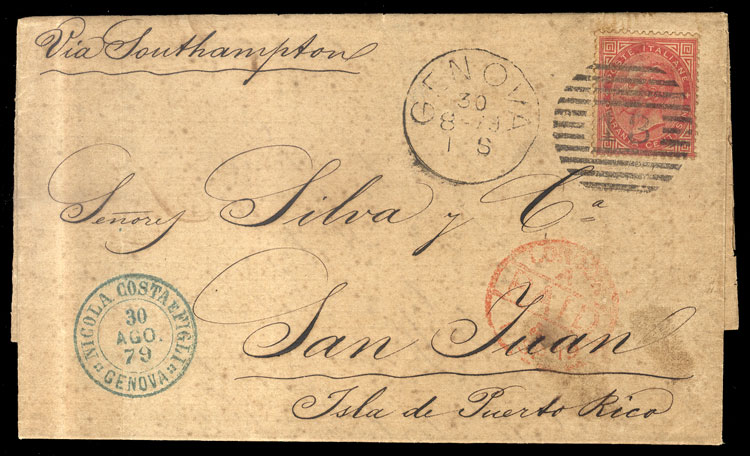 Via Southampton
GENOVA
30
8-79
1 S
POSTE ITALIANE
Señores Silva y Cª
San Juan
Isla de Puerto Rico
NICOLA COSTA E FIGLI
30
AGO.
79
GENOVA
PAID